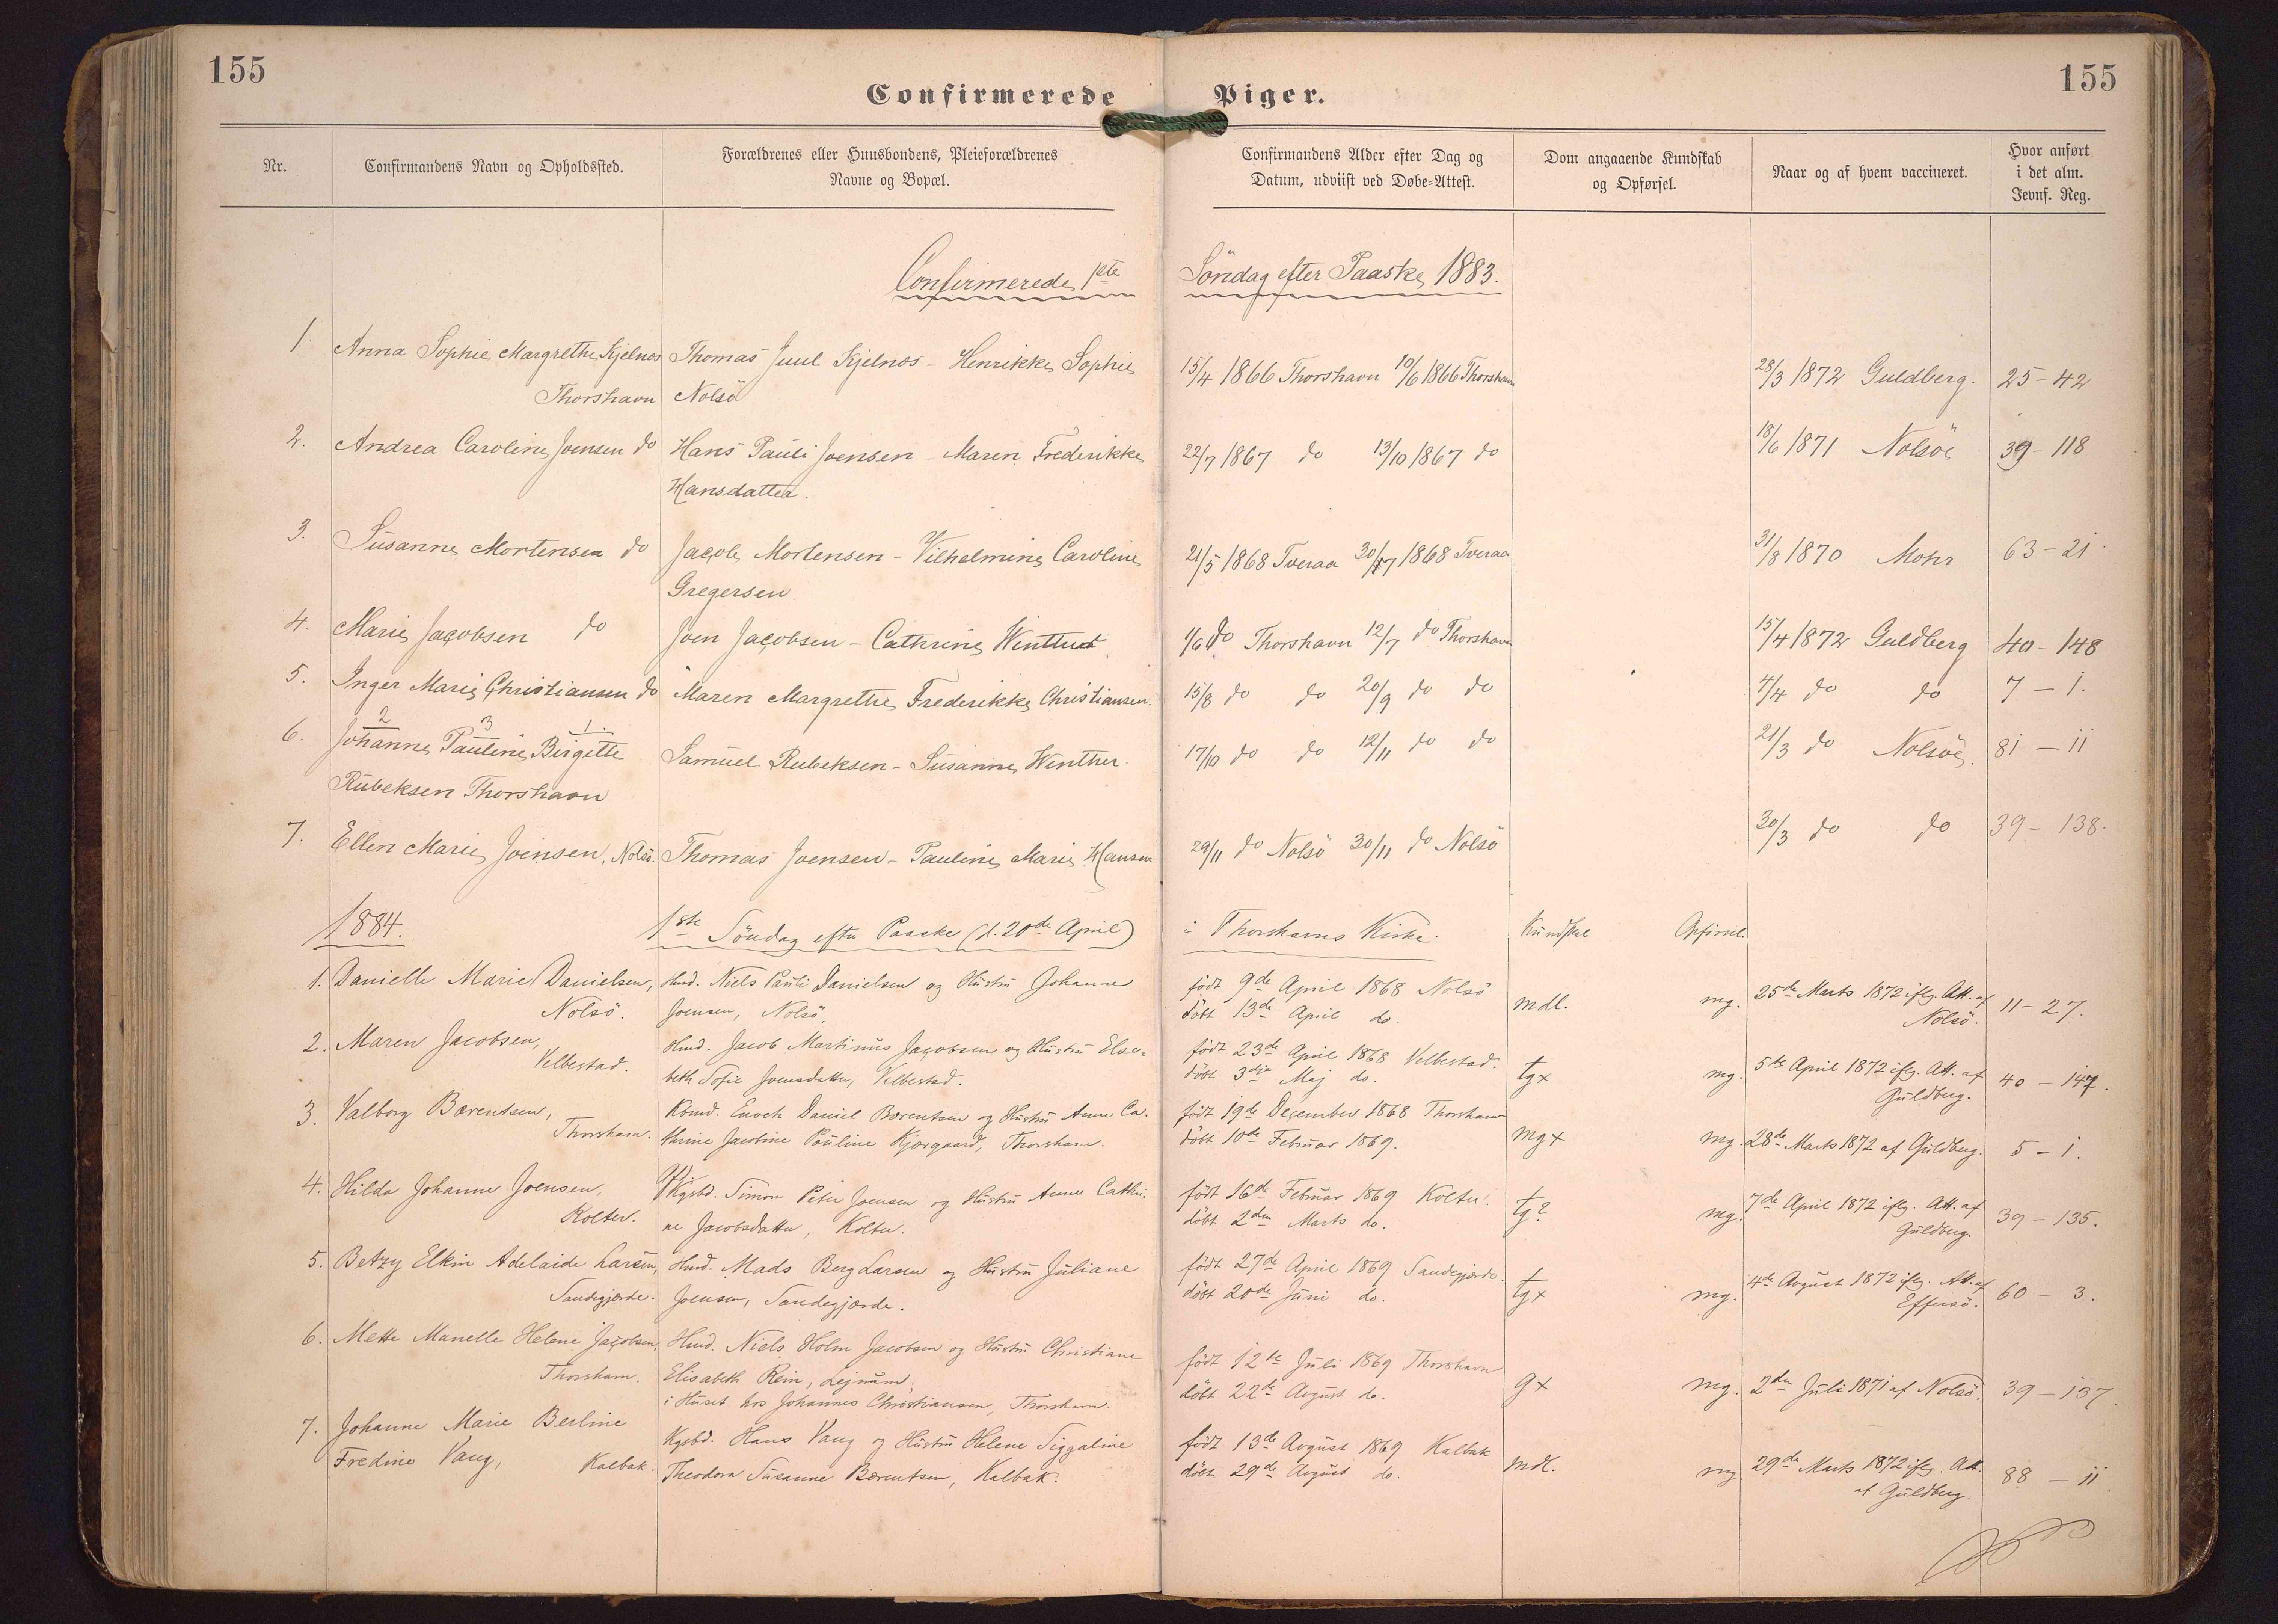 155
155
Confirmerede Piger.
Nr.
Confirmandens Navn og Opholdssted.
Forældrenes eller Huusbondens, Pleieforældrenes
Navne og Bopæl.
Confirmandens Alder efter Dag og
Datum, udviist ved Døbe-Attest.
Dom angaaende Kundskab
og Opførsel.
Naar og af hvem vaccineret.
Hvor anført
i det alm.
Jevnf. Reg.
Confirmerede 1ste Söndag efter Paaske 1883.
1 Anna Sophie Margrethe Kjelnæs Thomas Juul Kjelnæs - Henrikke Sophie 15/4 1866 Thorshavn 10/6 1866 Thorshavn 28/3 1872 Guldberg. 25-42
Thorshavn Nolsö
2. Andrea Caroline Joensen do Hans Pauli Joensen Maren Frederikke 22/7 1867 do 13/10 1867 do 18/6 1871 Nolsöe 39-118
Hansdatter.
3. Susanne Mortensen do Jacob Mortensen - Vilhelmine Caroline 21/5 1868 Tveraa 30/7 1868 Tveraa 31/8 1870 Mohr 63-21
Gregersen.
4. Marie Jacobsen do Joen Jacobsen - Cathrine Winther 1/6 do Thorshavn 12/7 do Thorshavn 15/4 1872 Guldberg 40-148
5. Inger Marie Christiansen do Maren Margrethe Frederikke Christiansen. 15/8 do do 20/9 do do 4/4 do do 7-1.
2 3 1
6. Johanne Pauline Birgitte Samuel Rubeksen - Susanne Winther. 17/10 do do 12/11 do do 21/3 do Nolsöe. 81-11
Rubeksen Thorshavn
7. Ellen Marie Joensen, Nolsö. Thomas Joensen - Pauline Marie Hansen 29/11 do Nolsö 30/11 do Nolsö 30/3 do do 39-138.
1884. 1ste Söndag efter Paaske (d. 20de April) i Thorshavns Kirke. Kundskab Opförsel.
1. Danielle Marie Danielsen, Hmd. Niels Pauli Danielsen og Hustru Johanne födt 9de April 1868 Nolsö mdl. mg. 25de Marts 1872 iflg. Att. af 11-27.
Nolsö. Joensen, Nolsö. döbt 13de April do. Nolsö.
2. Maren Jacobsen, Hmd. Jacob Martinus Jacobsen og Hustru Else- födt 23de April 1868 Velbestad. tg× mg. 5te April 1872 iflg. Att. af 40-147.
Velbestad. beth Sofie Joensdatter, Velbestad. döbt 3die Maj do. Guldberg.
3. Valborg Bærentsen, Kbmd. Enoch Daniel Bærentsen og Hustru Anne Ca- födt 19de December 1868 Thorshavn mg× mg. 28de Marts 1872 af Guldberg. 5-1.
Thorshavn. thrine Jacobine Pauline Kjærgaard, Thorshavn. döbt 10de Februar 1869.
4. Hilda Johanne Joensen, Kgsbd. Simon Peter Joensen og Hustru Anne Cathri- födt 16de Februar 1869 Kolter. tg? mg. 7de April 1872 iflg. Att. af 39-135.
Kolter. ne Jacobsdatter, Kolter. döbt 2den Marts do. Guldberg.
5. Betzy Elkin Adelaide Larsen, Hmd. Mads Berg Larsen og Hustru Juliane födt 27de April 1869 Sandegjærde. tg× mg. 4de August 1872 iflg. Att. af 60-3.
Sandegjærde. Joensen, Sandegjærde. döbt 20de Juni do. Effersö.
6. Mette Manelle Helene Jacobsen, Hmd. Niels Holm Jacobsen og Hustru Christiane födt 12te Juli 1869 Thorshavn g× mg. 2den Juli 1871 af Nolsö. 39-137
Thorshavn. Elisabeth Rein, Lejnum; döbt 22de August do.
i Huset hos Johannes Christiansen, Thorshavn.
7. Johanne Marie Berline Kgsbd. Hans Vang og Hustru Helene Siggaline födt 13de August 1869 Kalbak mdl. mg. 29de Marts 1872 iflg. Att. 88-11
Fredine Vang, Kalbak. Theodora Susanne Bærentsen, Kalbak. döbt 29de August do. af Guldberg.